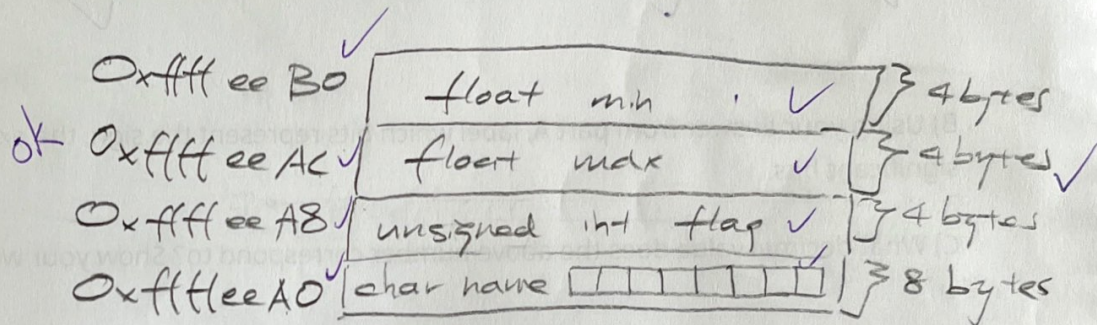 0xffff ee B0 ✓ float min . ✓ } 4 bytes
ok 0xffff ee AC ✓ float max ✓ } 4 bytes ✓
0xffff ee A8 ✓ unsigned int flag ✓ } 4 bytes
0xffffeeA0 ✓ char name ✓ } 8 bytes